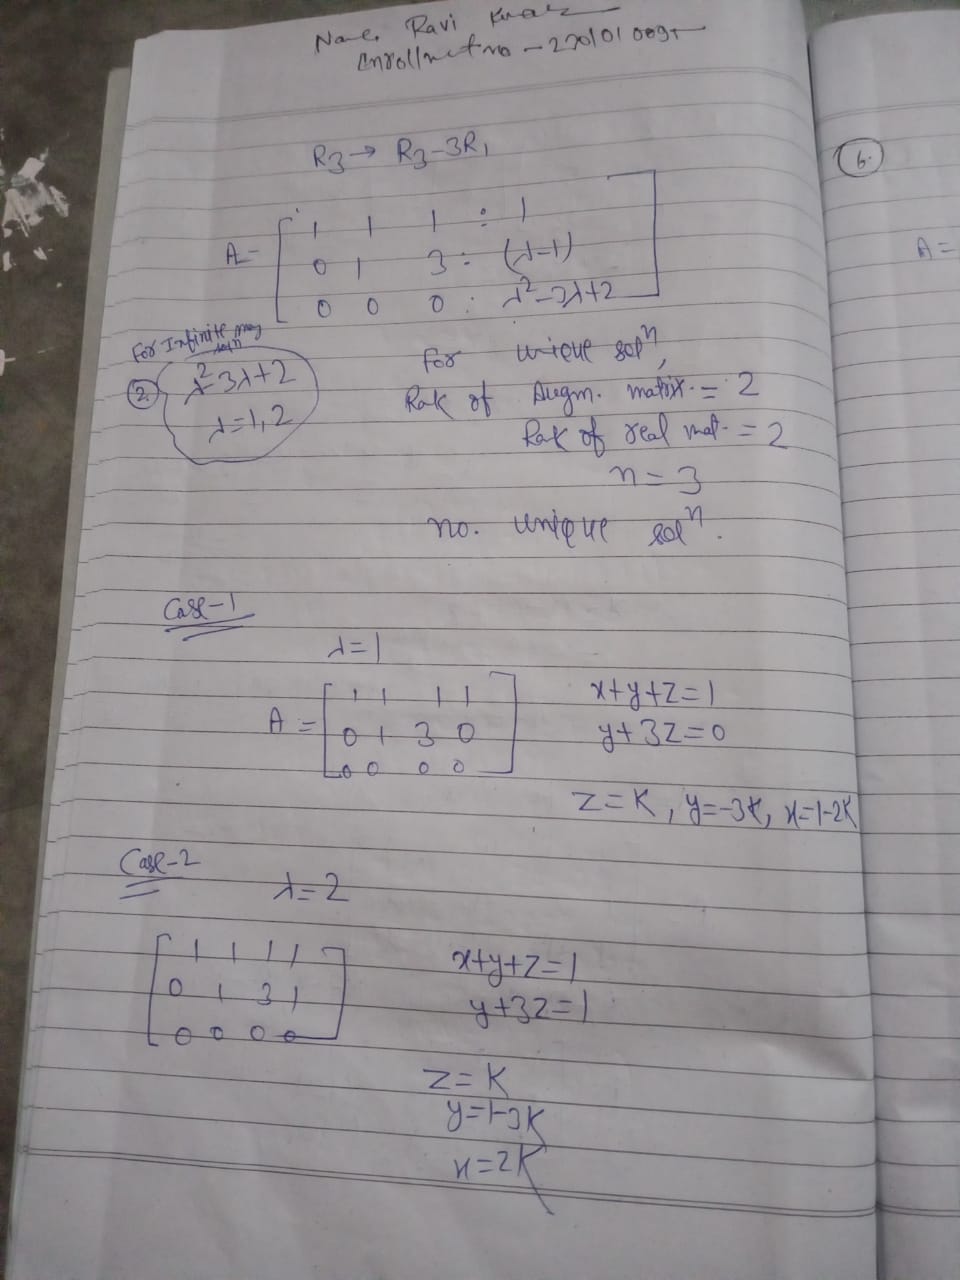 Name. Ravi
Enrollment no -
R3 → R3-3R1
A = 1 1 1 : 1
0 1 3 : (λ-1)
0 0 0 : λ²-3λ+2
For Infinite many
solⁿ
2. λ²-3λ+2
λ=1,2
For unique solⁿ,
Rak of Augm. matrix. = 2
Rak of real mat. = 2
n = 3
no. unique solⁿ.
Case-1
λ=1
A = 1 1 1 1
0 1 3 0
0 0 0 0
x+y+z=1
y+3z=0
z=K, y=-3K, x=1-2K
Case-2
λ=2
1 1 1 1
0 1 3 1
0 0 0 0
x+y+z=1
y+3z=1
z=K
y=1-3K
x=2K
6.
A=